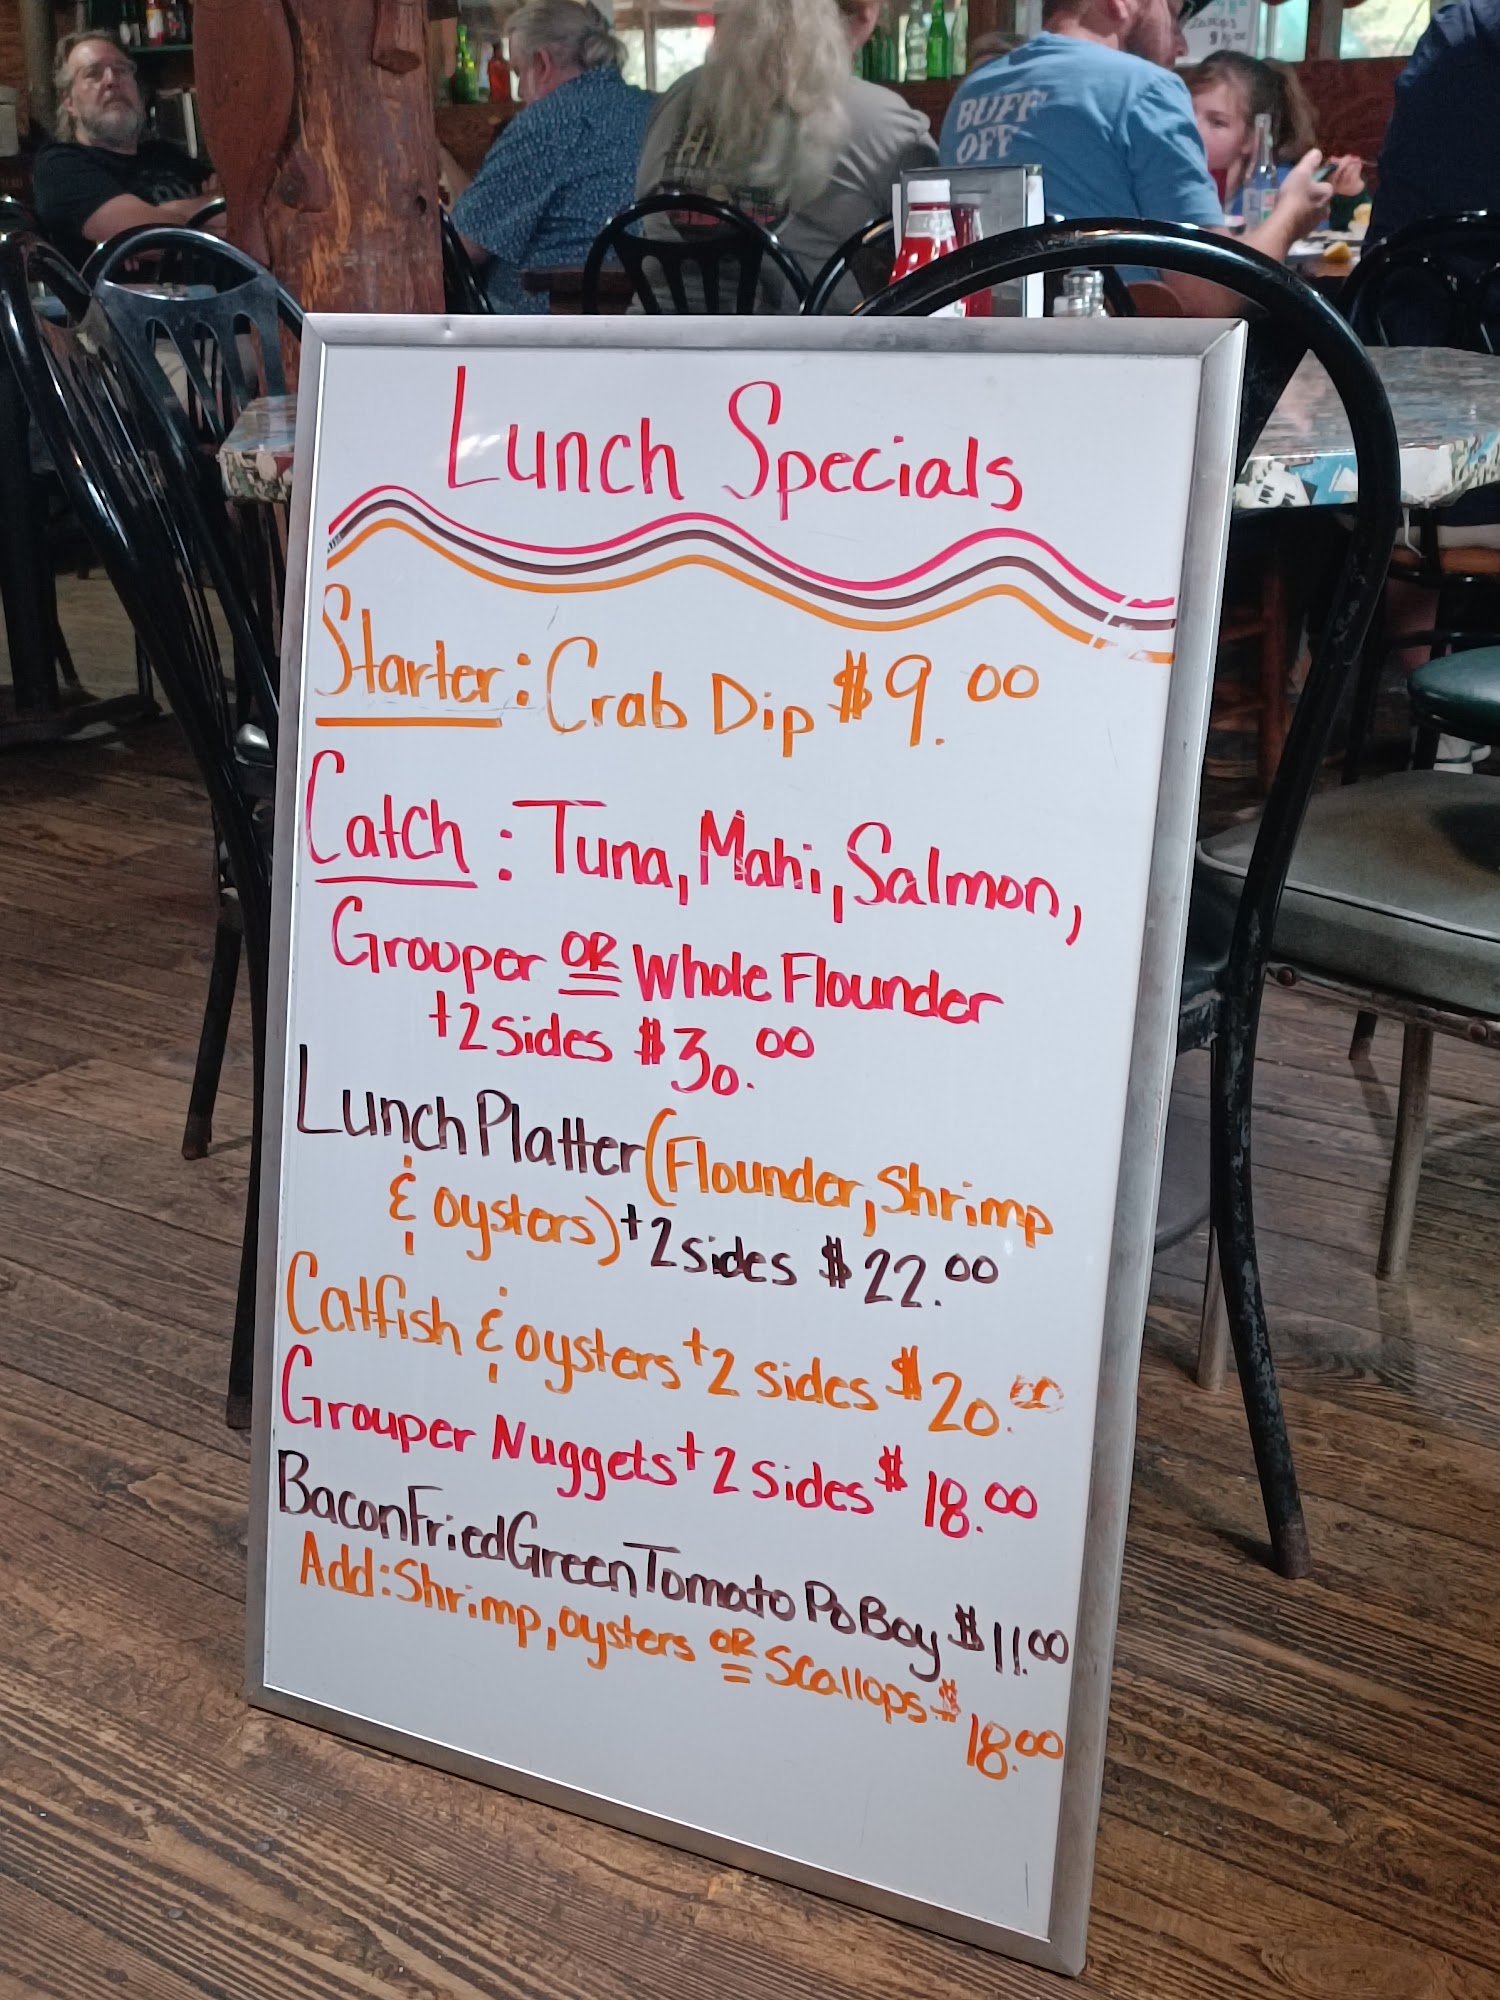 BUFF
OFF
Lunch Specials
Starter: Crab Dip $9.00
Catch: Tuna, Mahi, Salmon,
Grouper OR Whole Flounder
+2 sides $30.00
Lunch Platter (Flounder, Shrimp
& oysters) +2 sides $22.00
Catfish & oysters +2 sides $20.00
Grouper Nuggets +2 sides $18.00
Bacon Fried Green Tomato Po Boy $11.00
Add: Shrimp, oysters OR Scallops $18.00